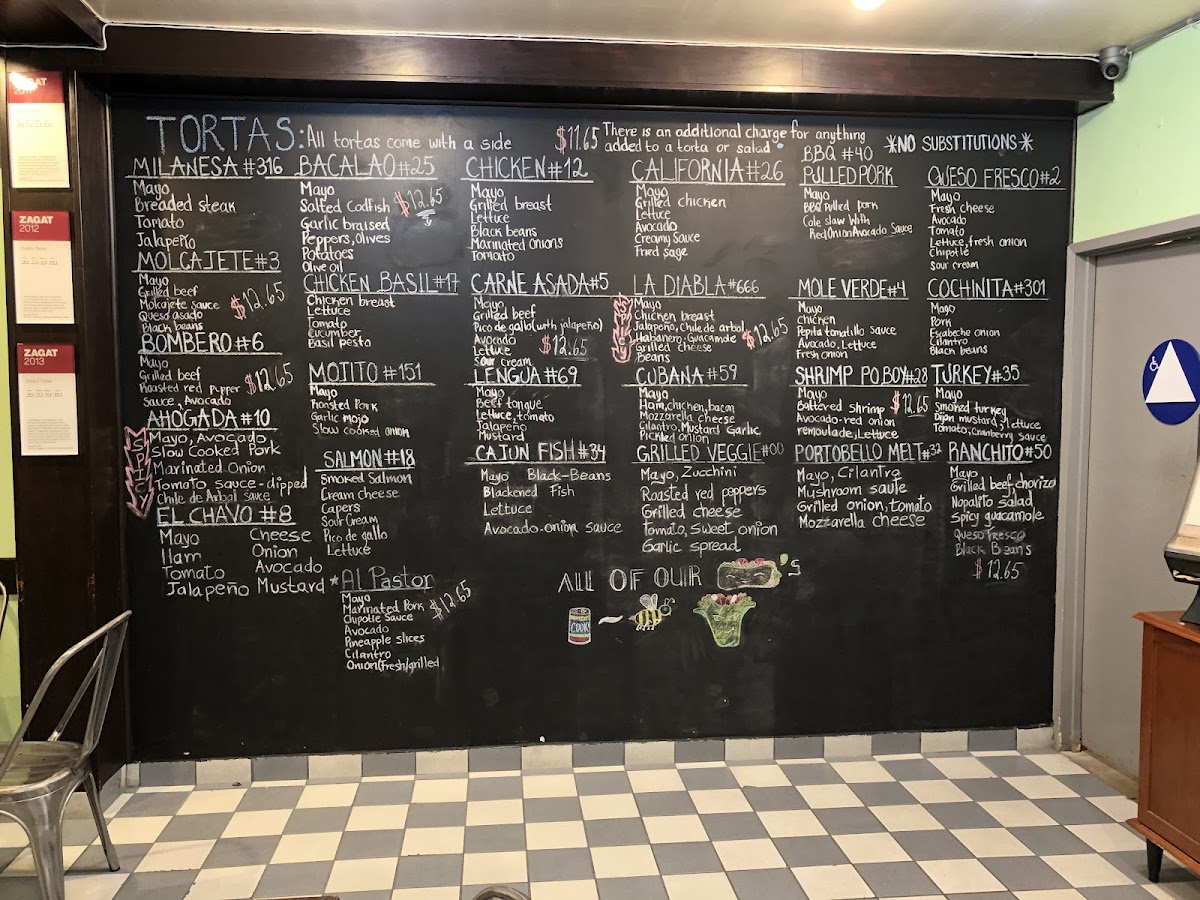 ZAGAT
2011
ZAGAT
2012
ZAGAT
2013
TORTAS: All tortas come with a side
$11.65
There is an additional charge for anything
added to a torta or salad
*NO SUBSTITUTIONS*
MILANESA #316
Mayo
Breaded steak
Tomato
Jalapeño
MOLCAJETE #3
Mayo
Grilled beef
Molcajete sauce
Queso asado
Black beans
$12.65
BOMBERO #6
Mayo
Grilled beef
Roasted red pepper
Sauce, Avocado
$12.65
AHOGADA #10
Mayo, Avocado
Slow Cooked Pork
Marinated Onion
Tomato sauce-dipped
Chile de Arbol sauce
EL CHAVO #8
Mayo Cheese
Ham Onion
Tomato Avocado
Jalapeño Mustard
BACALAO #25
Mayo
Salted Codfish
Garlic braised
Peppers, Olives
Potatoes
Olive oil
$12.65
CHICKEN BASIL #17
Chicken breast
Lettuce
Tomato
Cucumber
Basil pesto
MOJITO #151
Mayo
Roasted Pork
Garlic mojo
Slow cooked onion
SALMON #18
Smoked Salmon
Cream cheese
Capers
Sour Cream
Pico de gallo
Lettuce
*Al Pastor
Mayo
Marinated Pork
Chipotle Sauce
Avocado
Pineapple slices
Cilantro
Onion(fresh/grilled
$12.65
CHICKEN #12
Mayo
Grilled breast
Lettuce
Black beans
Marinated onions
Tomato
CARNE ASADA #5
Mayo
Grilled beef
Pico de gallo (with jalapeño)
Avocado
Lettuce
Sour cream
$12.65
LENGUA #69
Mayo
Beef tongue
Lettuce, tomato
Jalapeño
Mustard
CAJUN FISH #34
Mayo Black-Beans
Blackened Fish
Lettuce
Avocado-onion sauce
CALIFORNIA #26
Mayo
Grilled chicken
Lettuce
Avocado
Creamy Sauce
Fried sage
LA DIABLA #666
Mayo
Chicken breast
Jalapeño, Chile de arbol
Habanero, Guacamole
Grilled cheese
Beans
$12.65
CUBANA #59
Mayo
Ham, chicken, bacon
Mozzarella cheese
Cilantro, Mustard Garlic
Pickled onion
GRILLED VEGGIE #00
Mayo, Zucchini
Roasted red peppers
Grilled cheese
Tomato, sweet onion
Garlic spread
BBQ #40
PULLED PORK
Mayo
BBQ Pulled pork
Cole slaw with
Red Onion Avocado Sauce
MOLE VERDE #4
Mayo
Chicken
Pepita tomatillo sauce
Avocado, Lettuce
Fresh onion
SHRIMP PO.BOY #28
Mayo
Battered shrimp
Avocado-red onion
remoulade, Lettuce
$12.65
PORTOBELLO MELT #32
Mayo, Cilantro
Mushroom saute
Grilled onion, tomato
Mozzarella cheese
QUESO FRESCO #2
Mayo
Fresh cheese
Avocado
Tomato
Lettuce, fresh onion
Chipotle
Sour cream
COCHINITA #301
Mayo
Pork
Escabeche onion
Cilantro
Black beans
TURKEY #35
Mayo
Smoked turkey
Dijon mustard, lettuce
Tomato, Cranberry sauce
RANCHITO #50
Mayo
Grilled beef, chorizo
Nopalito salad
Spicy guacamole
Queso fresco
Black Beans
$12.65
ALL OF OUR 'S
COOK